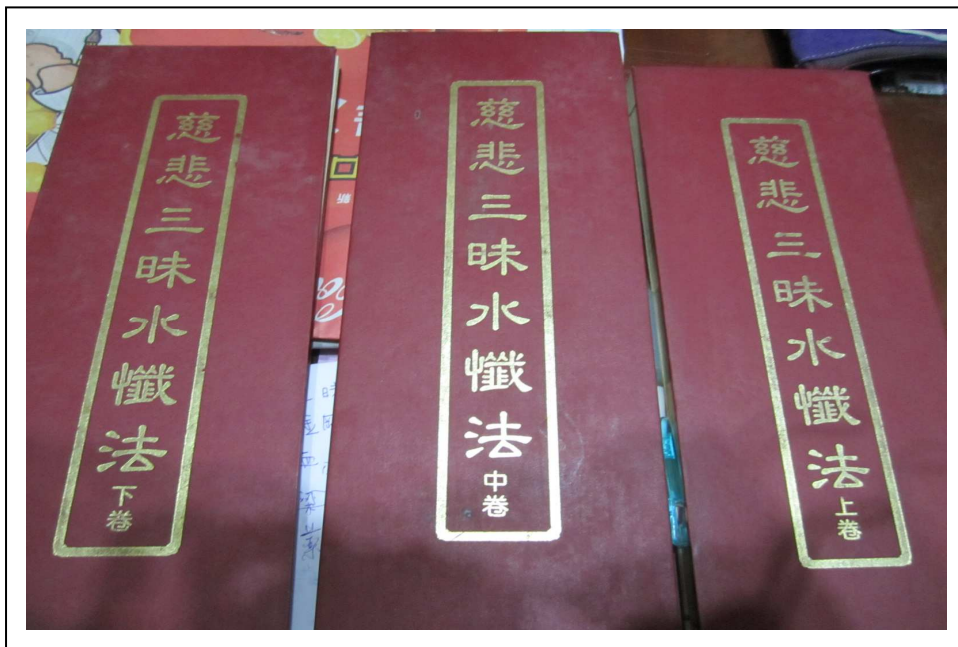 慈悲三昧水懺法
上卷
慈悲三昧水懺法
中卷
慈悲三昧水懺法
下卷